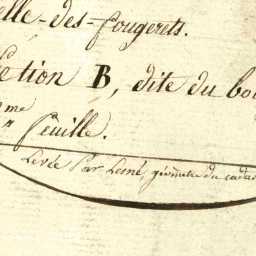 elle-des-fougerets.
ction B, dite du bou
me feuille.
Levée Par Lesné, géomètre du cadas